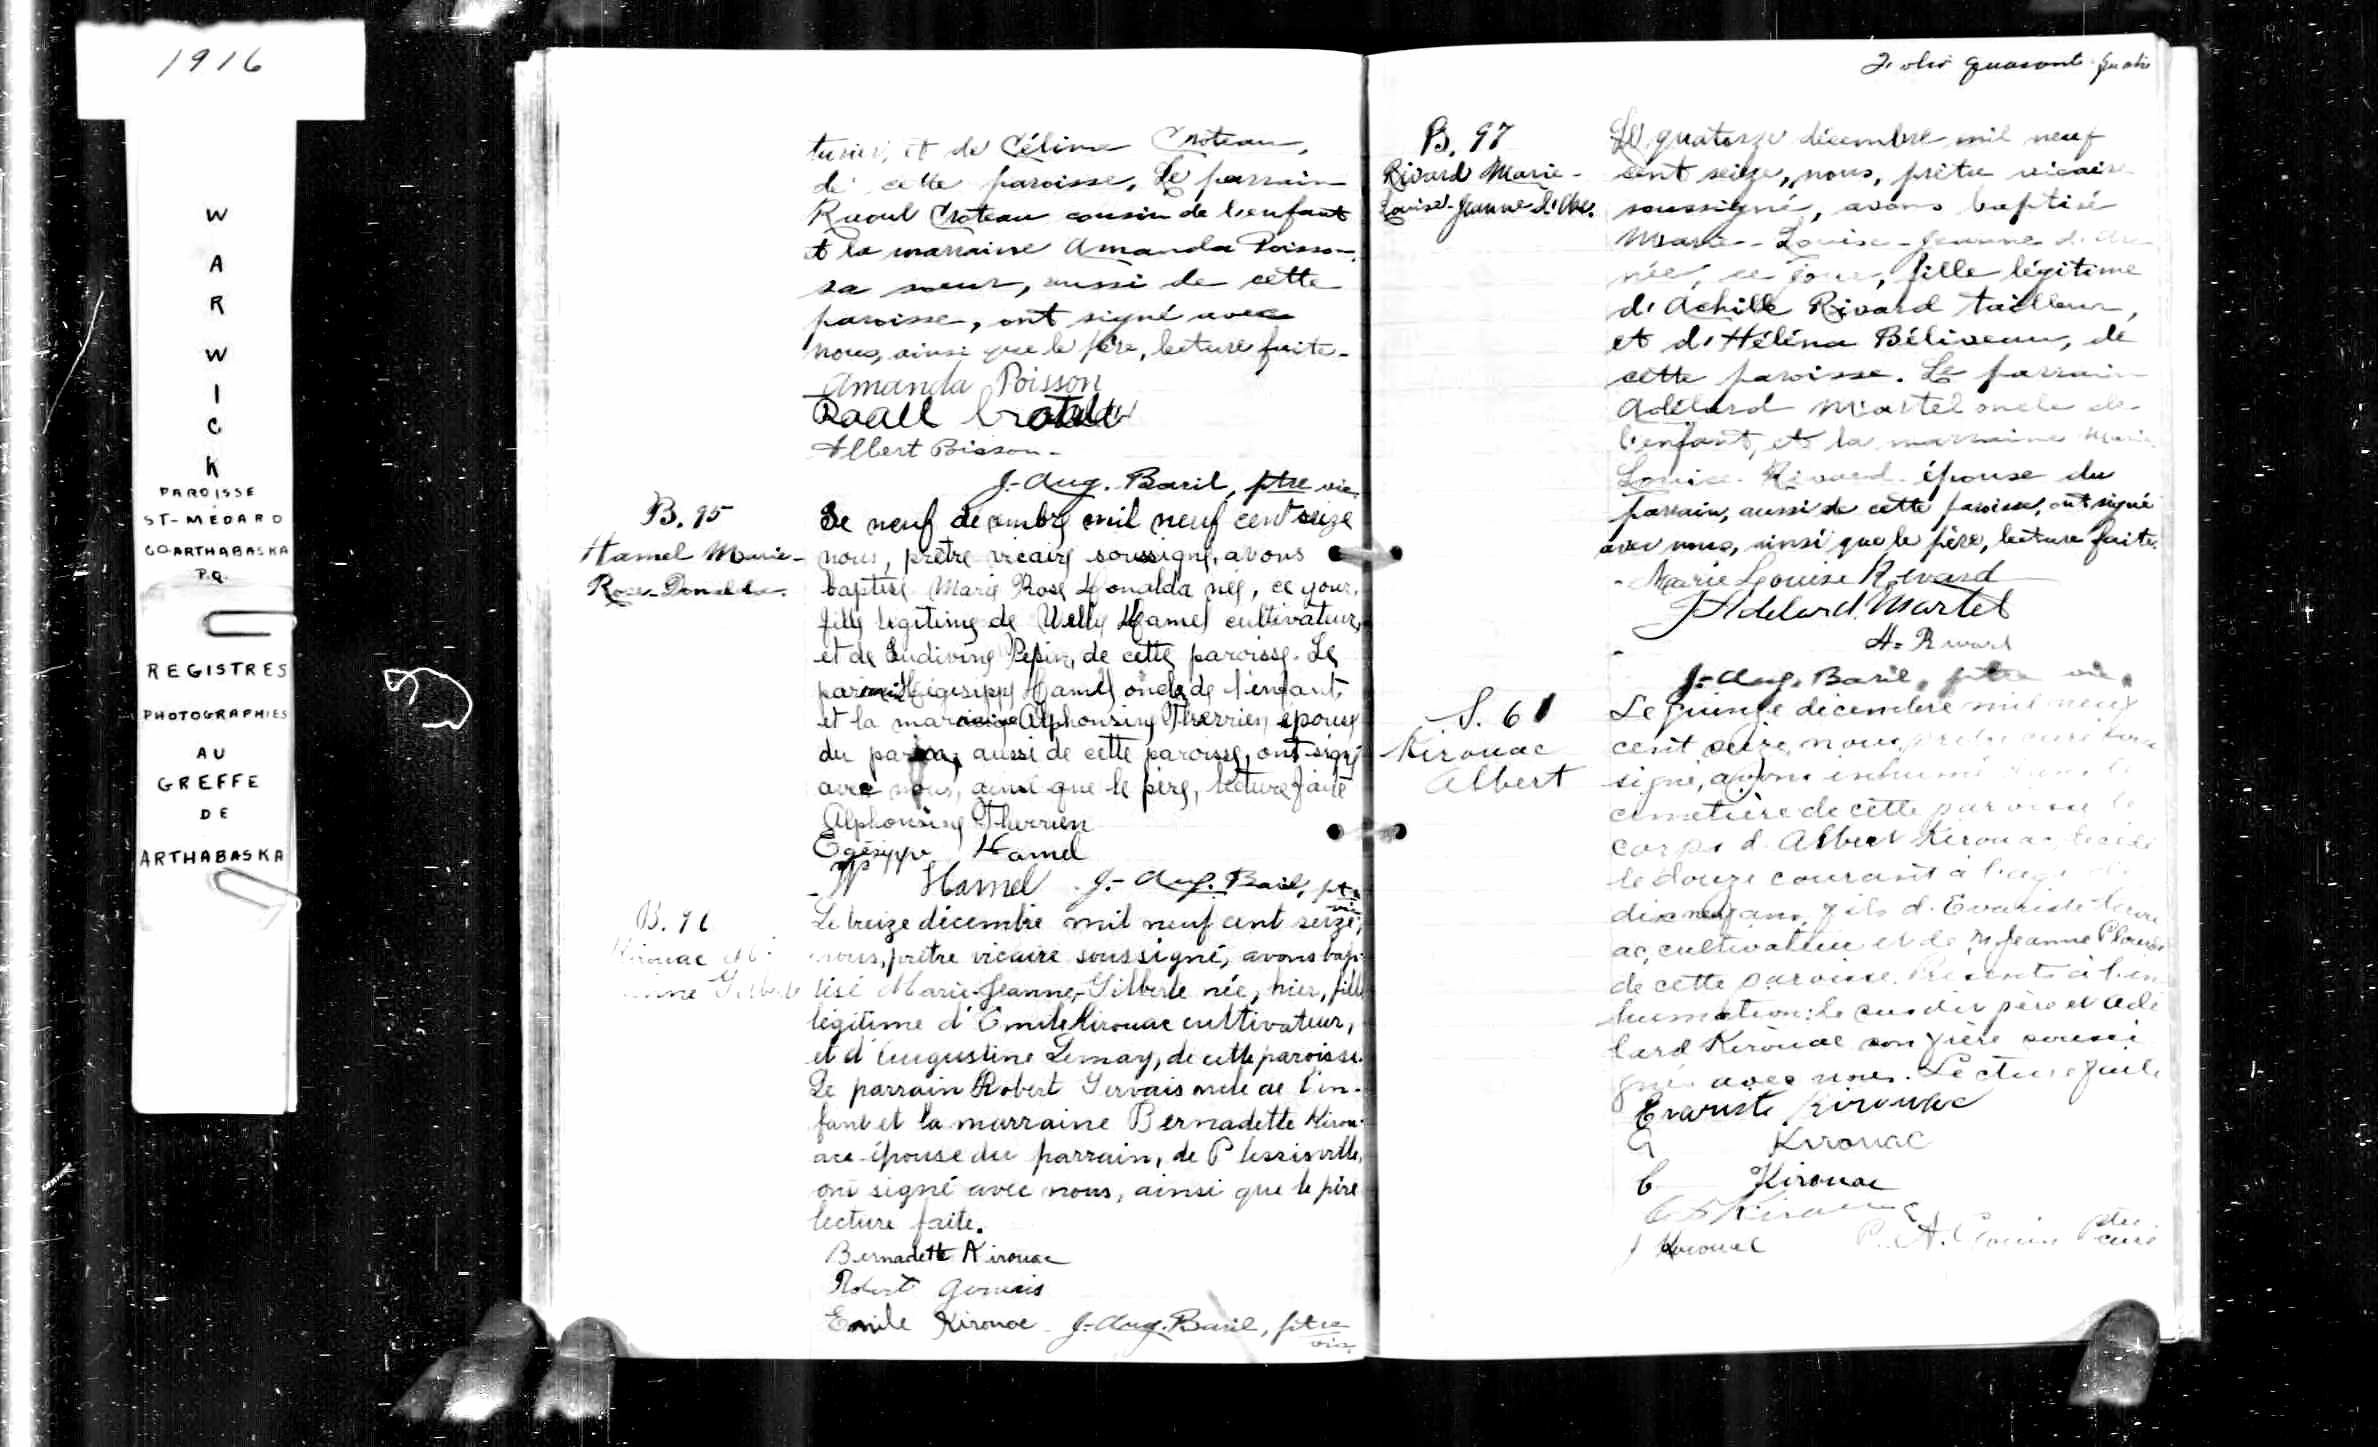 1916
WARWICK
PAROISSE
ST-MÉDARD
CO ARTHABASKA
P.Q.
REGISTRES
PHOTOGRAPHIES
AU
GREFFE
DE
ARTHABASKA
turier, et de Céline Croteau,
de cette paroisse, Le parrain
Raoul Croteau cousin de l'enfant
et la marraine Amanda Poisson,
sa soeur, aussi de cette
paroisse, ont signé avec
nous, ainsi que le père, lecture faite.
Amanda Poisson
Albert Poisson
J.-Aug. Baril, ptre vic.
B. 95
Hamel Marie-
Rose-Donalda.
Le neuf décembre mil neuf cent seize
nous, prêtre vicaire soussigné, avons
baptisé Marie Rose Donalda née, ce jour,
fille légitime de Willy Hamel cultivateur,
et de Ludivine Pepin, de cette paroisse. Le
parrain Hégésippe Hamel oncle de l'enfant,
et la marraine Alphonsine Therrien épouse
du parrain, aussi de cette paroisse, ont signé
avec nous, ainsi que le père, lecture faite
Alphonsine Therrien
Egésippe Hamel
W Hamel J.-Aug. Baril, ptre
vic.
B. 96
Kirouac
Gilberte
Le treize décembre mil neuf cent seize,
nous, prêtre vicaire soussigné, avons bap-
tisé Marie-Jeanne-Gilberte née, hier, fille
légitime d'Emile Kirouac cultivateur,
et d'Augustine Lemay, de cette paroisse.
Le parrain Robert Gervais oncle de l'en-
fant et la marraine Bernadette Kirou-
ac épouse du parrain, de Plessisville,
ont signé avec nous, ainsi que le père
lecture faite.
Bernadette Kirouac
Robert Gervais
Emile Kirouac J.-Aug. Baril, ptre
vic.
Folio quarante-quatre
B. 97
Rivard Marie-
Louise-Jeanne d'Arc.
Le quatorze décembre mil neuf
cent seize, nous, prêtre vicaire
soussigné, avons baptisé
Marie-Louise-Jeanne d'Arc
née, ce jour, fille légitime
d'Achille Rivard tailleur,
et d'Héléna Béliveau, de
cette paroisse. Le parrain
Adélard Martel oncle de
l'enfant, et la marraine Marie
Louise Rivard épouse du
parrain, aussi de cette paroisse, ont signé
avec nous, ainsi que le père, lecture faite.
Marie Louise Rivard
J Adelard Martel
A. Rivard
J.-Aug. Baril, ptre vic.
S. 61
Kirouac
Albert
Le quinze décembre mil neuf
cent seize, nous, prêtre curé sous
signé, avons inhumé dans le
cimetière de cette paroisse le
corps d'Albert Kirouac, décédé
le douze courant à l'age de
dix neuf ans, fils d'Evariste Kirou
ac, cultivateur et de M. Jeanne Plourde
de cette paroisse. Présents à l'in
humation: le susdit père et Adé
lard Kirouac son frère soussi
gnés avec nous. Lecture faite
Evariste Kirouac
G Kirouac
C Kirouac
J Kirouac
ptre
curé